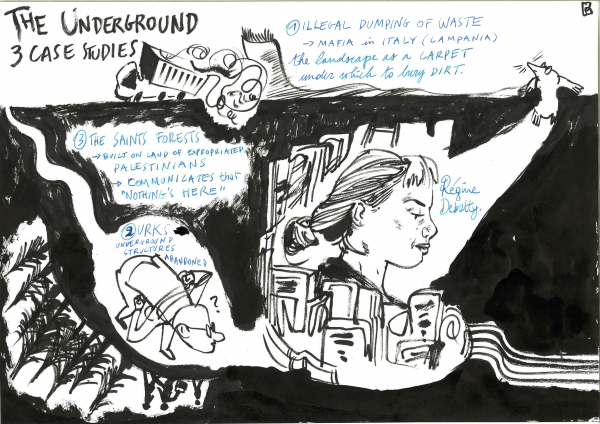 THE UNDERGROUND
3 CASE STUDIES
1 ILLEGAL DUMPING OF WASTE
→ MAFIA in ITALY (CAMPANIA)
the landscape as a CARPET
under which to bury DIRT.
3 THE SAINTS FORESTS
→ BUILT ON LAND OF EXPROPRIATED
PALESTINIANS
→ COMMUNICATES that
"NOTHING'S HERE"
Régine
Debatty.
2 URKS
UNDERGROUND
STRUCTURES
ABANDONED
?